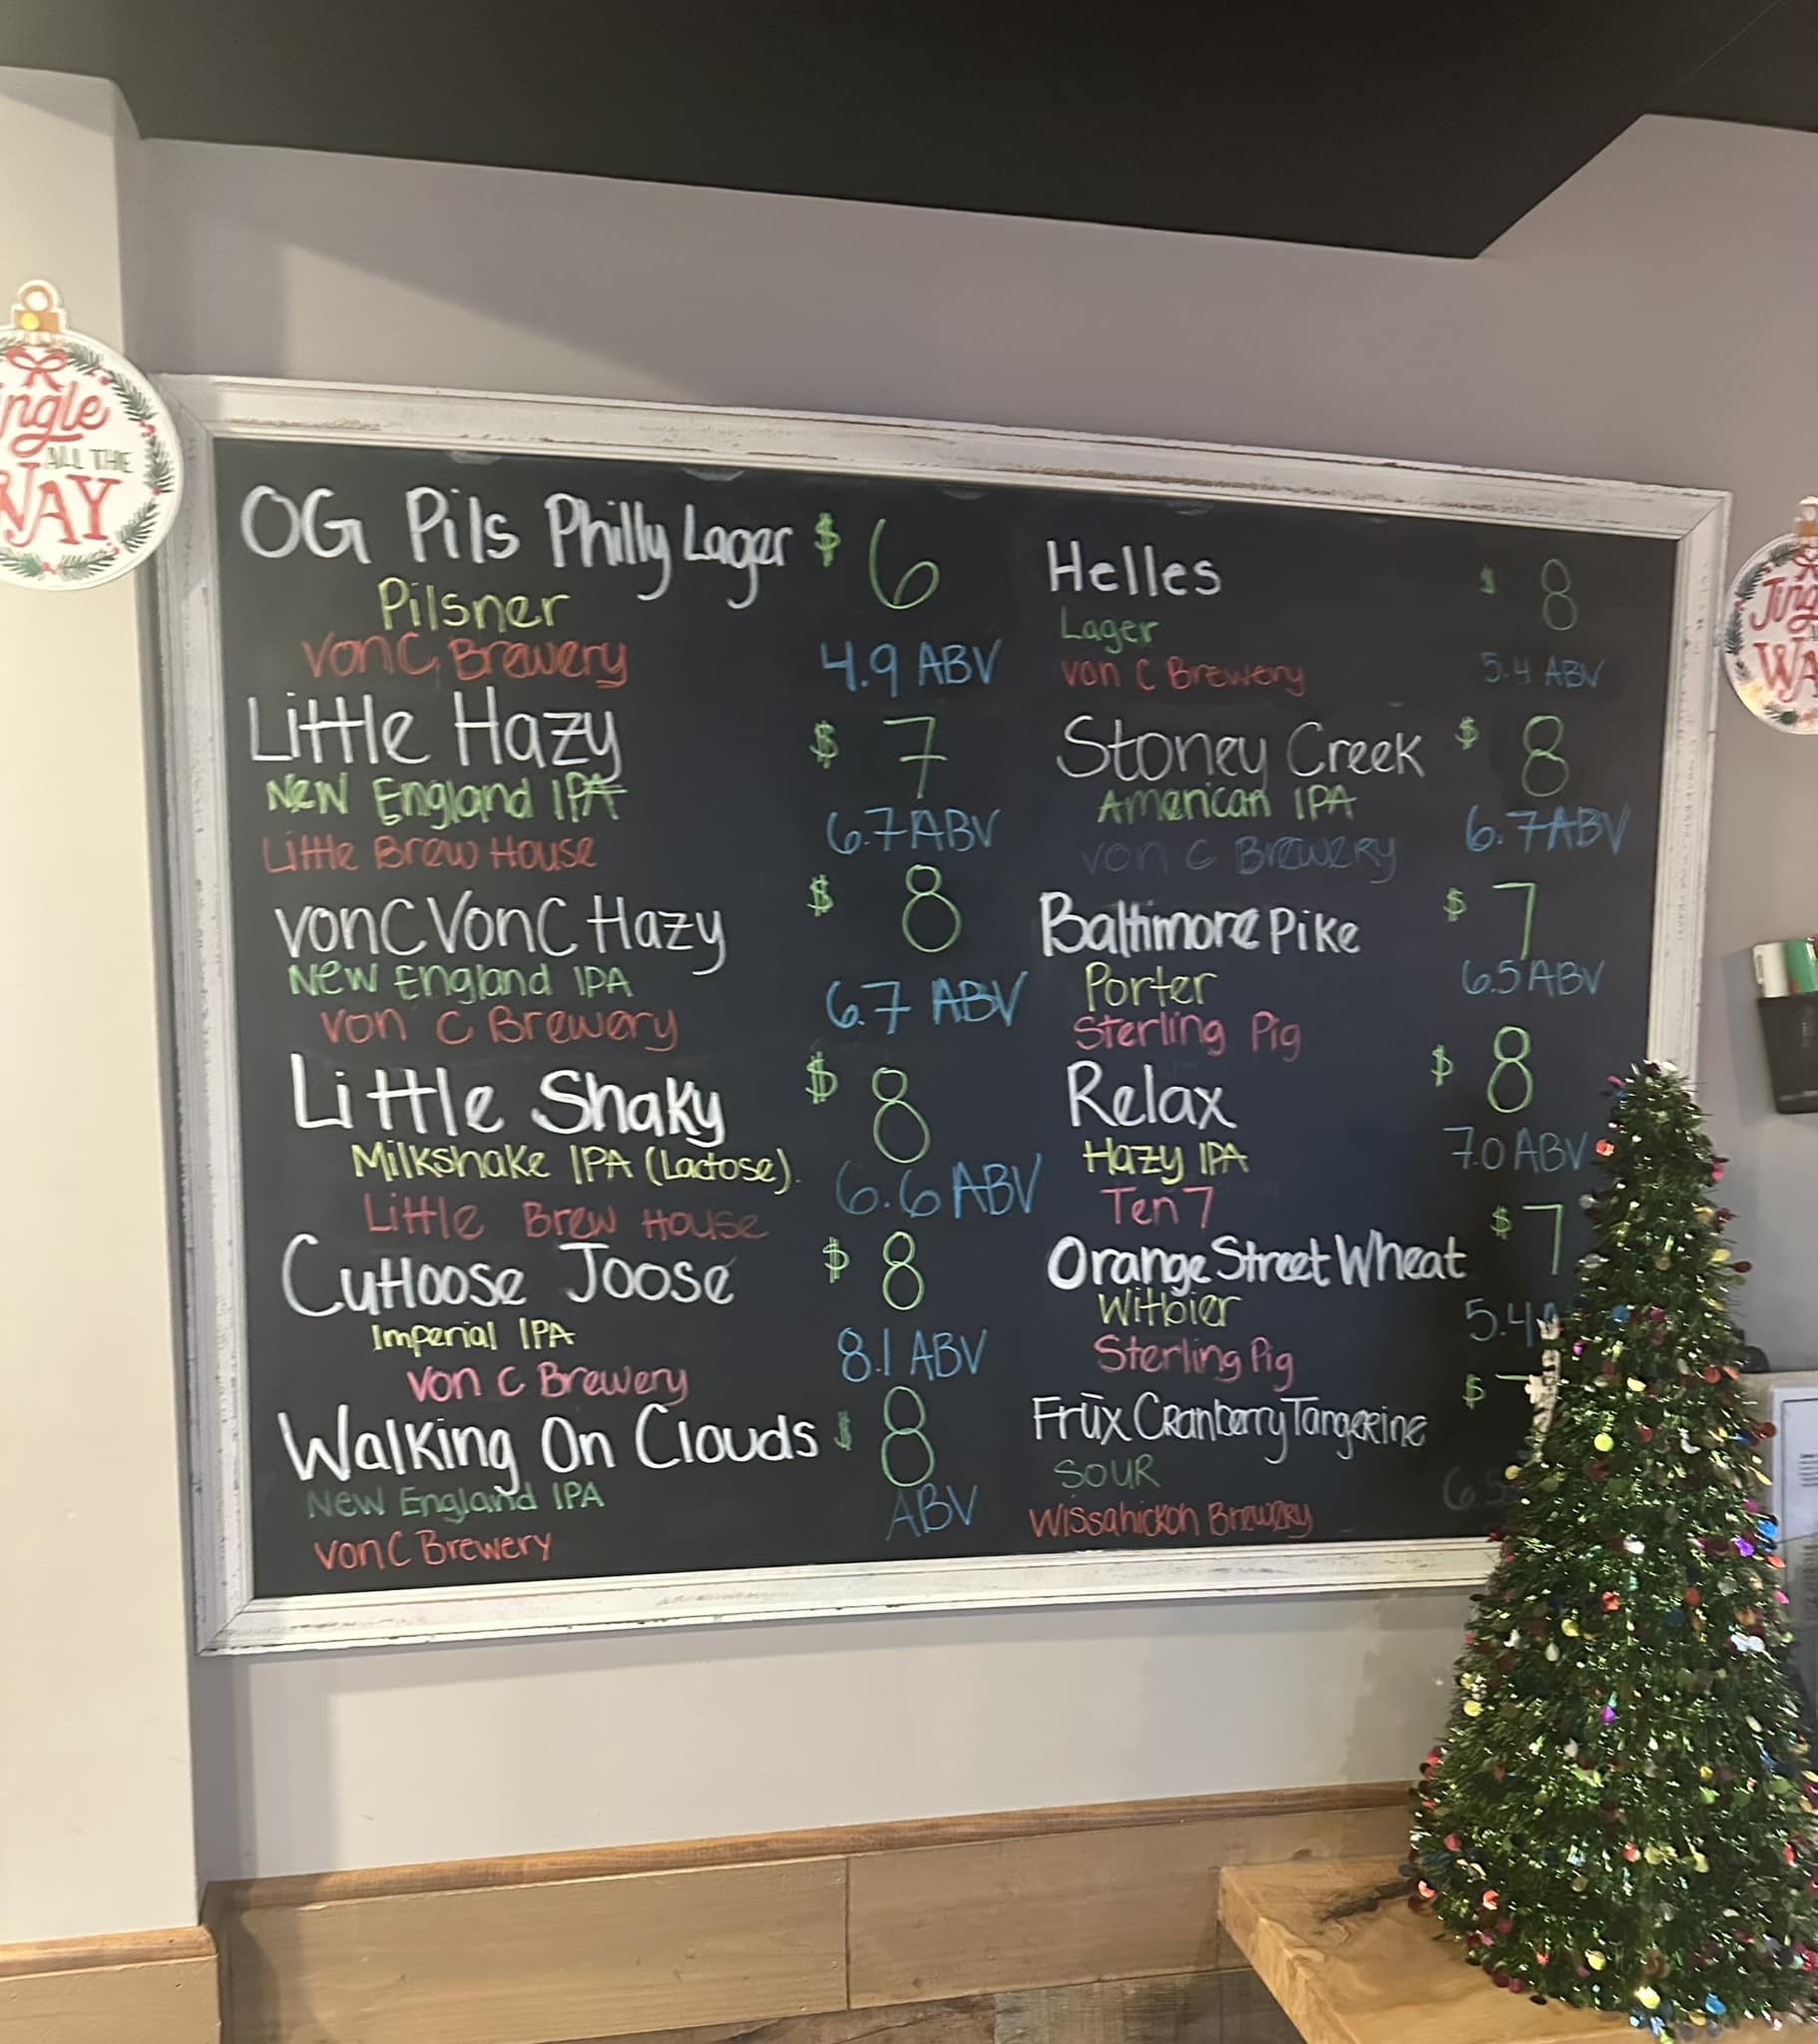 OG Pils Philly Lager $ 6
Pilsner
vonC Brewery 4.9 ABV
Little Hazy $ 7
New England IPA
Little Brew House 6.7 ABV
vonC VonC Hazy $ 8
New England IPA
von C Brewery 6.7 ABV
Little Shaky $ 8
Milkshake IPA (Lactose).
Little Brew House 6.6 ABV
CuHoose Joose $ 8
Imperial IPA
von C Brewery 8.1 ABV
Walking On Clouds $ 8
New England IPA ABV
vonC Brewery
Helles $ 8
Lager
von C Brewery 5.4 ABV
Stoney Creek $ 8
American IPA 6.7 ABV
von C Brewery
Baltimore Pike $ 7
Porter 6.5 ABV
Sterling Pig
Relax $ 8
Hazy IPA 7.0 ABV
Ten 7
Orange Street Wheat $ 7
Witbier 5.4 A
Sterling Pig
Früx Cranberry Tangerine $
SOUR
Wissahickon Brewery
ingle
ALL THE
WAY
Jing
WA